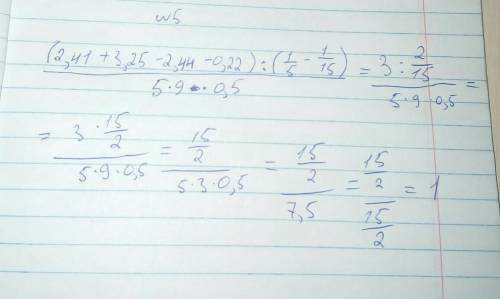 №5
(2,41 + 3,25 - 2,44 - 0,22) : (1/5 - 1/15) / 5·9·0,5 = 3 : 2/15 / 5·9·0,5 =
= 3 · 15/2 / 5·9·0,5 = 15/2 / 5·3·0,5 = 15/2 / 7,5 = 15/2 / 15/2 = 1